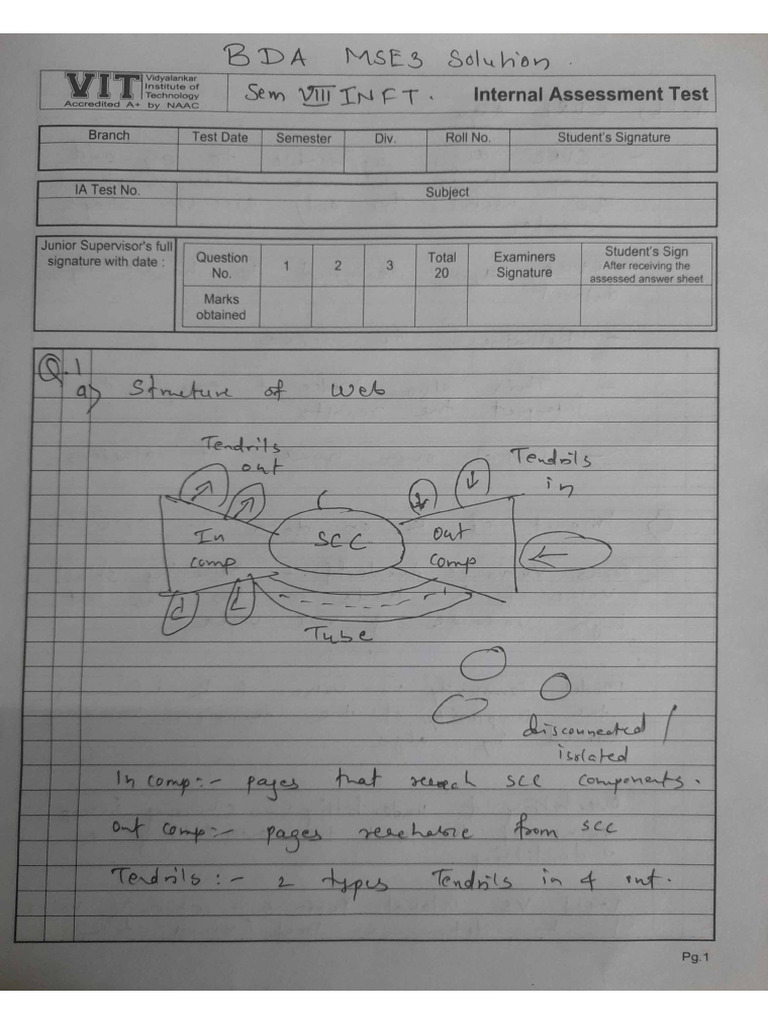 BDA MSE3 Solution.
VIT Vidyalankar Institute of Technology
Accredited A+ by NAAC
Sem VIII INFT.
Internal Assessment Test
Branch Test Date Semester Div. Roll No. Student's Signature
IA Test No. Subject
Junior Supervisor's full signature with date :
Question No. 1 2 3 Total 20 Examiners Signature Student's Sign After receiving the assessed answer sheet
Marks obtained
Q.1
a) Structure of Web
Tendrils out
Tendrils in
In comp
SCC
out comp
Tube
disconnected / isolated
In comp:- pages that reach SCC components.
out comp:- pages reachable from SCC
Tendrils :- 2 types Tendrils in & out.
Pg.1